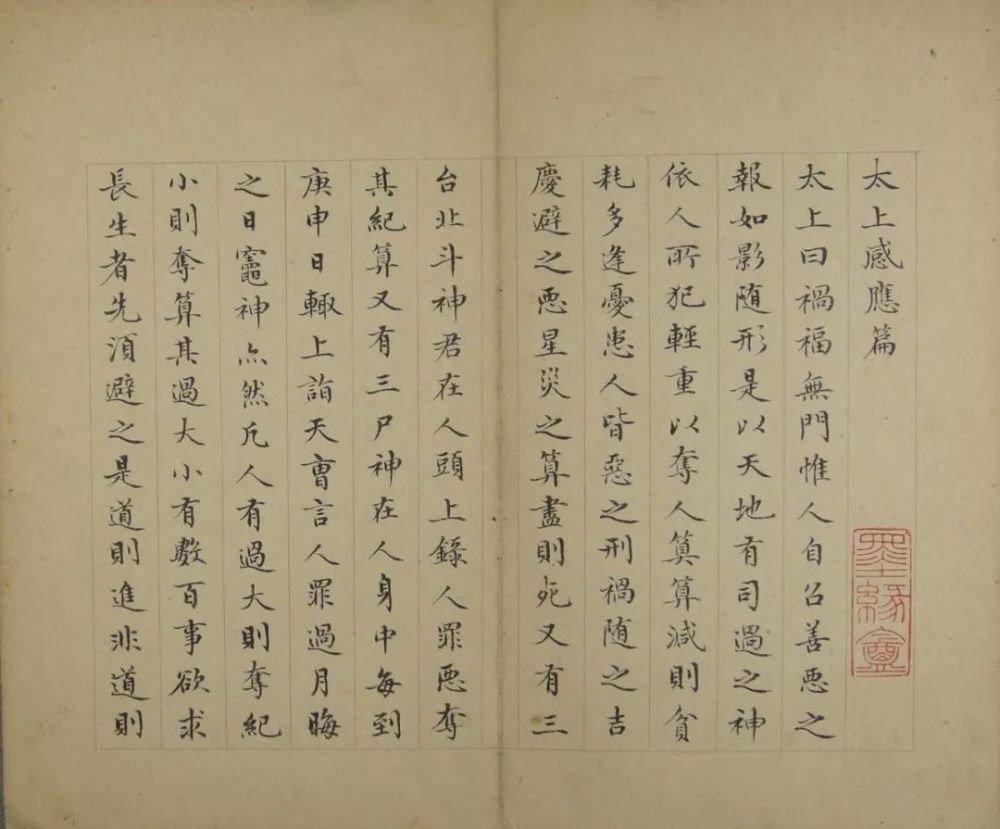 太上感應篇
太上曰禍福無門惟人自召善惡之
報如影随形是以天地有司過之神
依人所犯輕重以奪人算算減則貧
耗多逢憂患人皆惡之刑禍随之吉
慶避之惡星災之算盡則死又有三
台北斗神君在人頭上錄人罪惡奪
其紀算又有三尸神在人身中每到
庚申日輙上詣天曹言人罪過月晦
之日竈神亦然凡人有過大則奪紀
小則奪算其過大小有數百事欲求
長生者先須避之是道則進非道則
墨緣盦